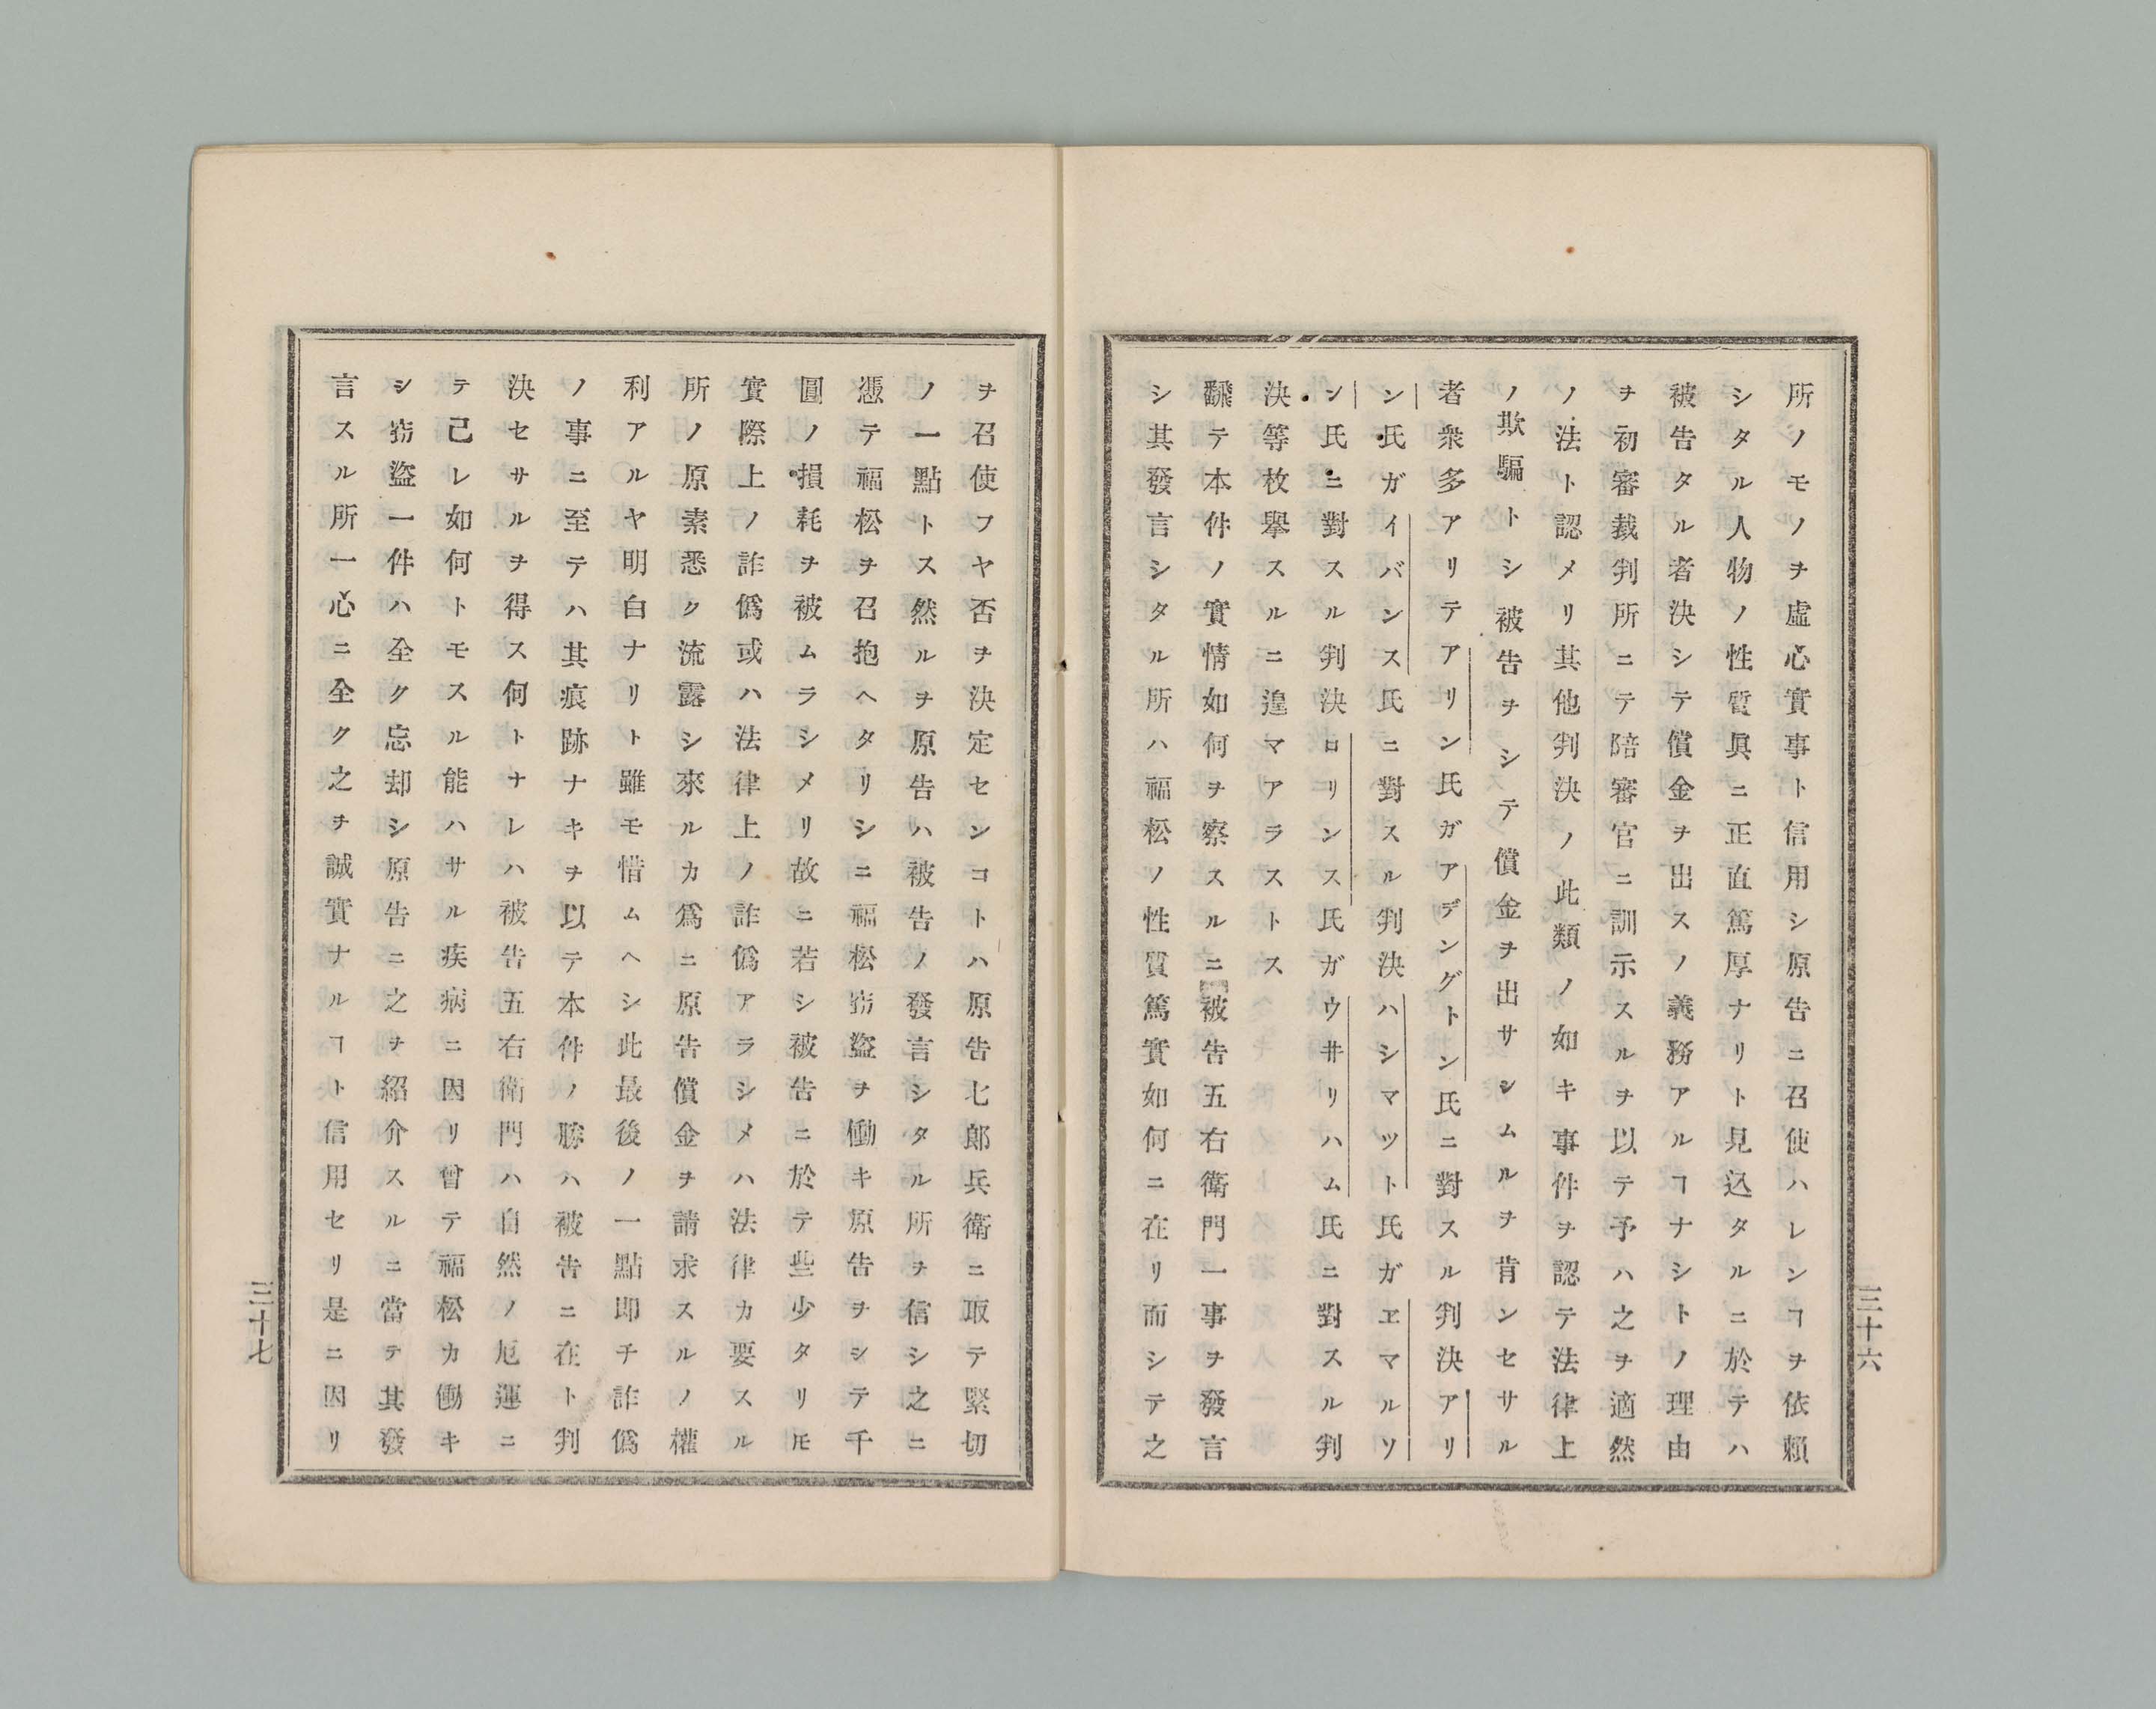 所ノモノヲ虛心實事ト信用シ原告ニ召使ハレンヿヲ依賴
シタル人物ノ性質眞ニ正直篤厚ナリト見込タルニ於テハ
被告タル者決シテ償金ヲ出スノ義務アルヿナシトノ理由
ヲ初審裁判所ニテ陪審官ニ訓示スルヲ以テ予ハ之ヲ適然
ノ法ト認メリ其他判決ノ此類ノ如キ事件ヲ認テ法律上
ノ欺騙トシ被告ヲシテ償金ヲ出サシムルヲ肯ンセサル
者衆多アリテアリン氏ガアデングトン氏ニ對スル判決アリ
ン氏ガイバンス氏ニ對スル判決ハシマツト氏ガエマルソ
ン氏ニ對スル判決ロリンス氏ガウ井リハム氏ニ對スル判
決等枚擧スルニ遑マアラストス
飜テ本件ノ實情如何ヲ察スルニ被告五右衛門一事ヲ發言
シ其發言シタル所ハ福松ノ性質篤實如何ニ在リ而シテ之
三十六
ヲ召使フヤ否ヲ決定センコトハ原告七郎兵衛ニ取テ緊切
ノ一點トス然ルヲ原告ハ被告ノ發言シタル所ヲ信シ之ニ
憑テ福松ヲ召抱ヘタリシニ福松竊盜ヲ働キ原告ヲシテ千
圓ノ損耗ヲ被ムラシメリ故ニ若シ被告ニ於テ些少タリ𪜈
實際上ノ詐僞或ハ法律上ノ詐僞アラシメハ法律カ要スル
所ノ原素悉ク流露シ來ルカ爲ニ原告償金ヲ請求スルノ權
利アルヤ明白ナリト雖モ惜ムヘシ此最後ノ一點卽チ詐僞
ノ事ニ至テハ其痕跡ナキヲ以テ本件ノ勝ハ被告ニ在ト判
決セサルヲ得ス何トナレハ被告五右衛門ハ自然ノ厄運ニ
テ己レ如何トモスル能ハサル疾病ニ因リ曾テ福松カ働キ
シ竊盜一件ハ全ク忘却シ原告ニ之ヲ紹介スルニ當テ其發
言スル所一心ニ全ク之ヲ誠實ナルヿト信用セリ是ニ因リ
三十七